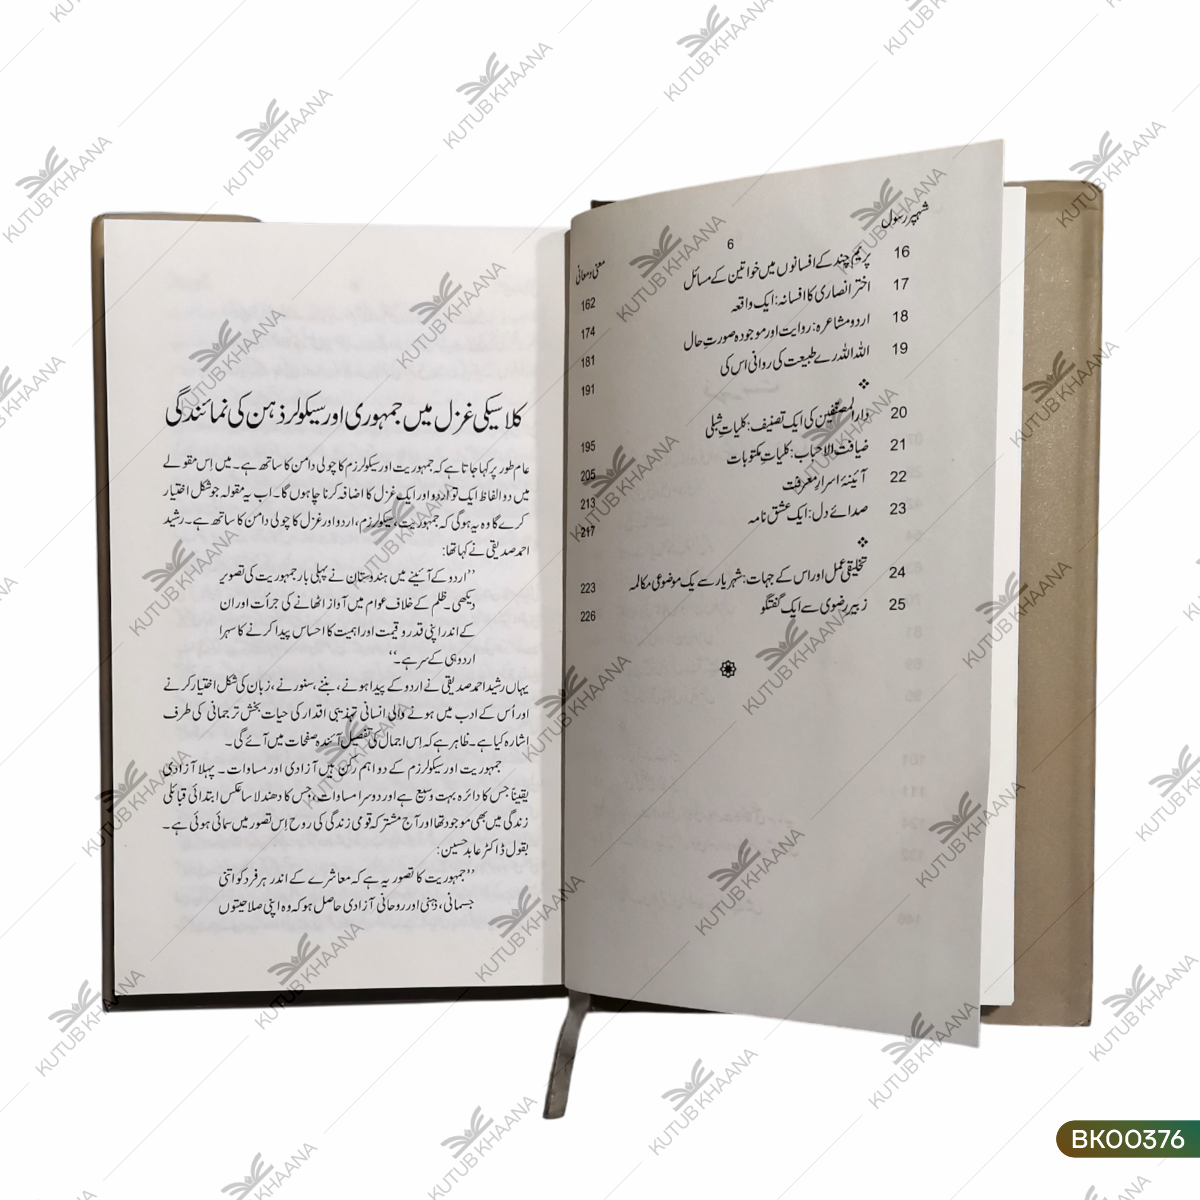 شہپر رسول
6
معنی و معانی
16 پریم چند کے افسانوں میں خواتین کے مسائل 162
17 اختر انصاری کا افسانہ: ایک واقعہ 174
18 اردو مشاعرہ: روایت اور موجودہ صورتِ حال 181
19 اللہ اللہ رے طبیعت کی روانی اس کی 191
20 دارالمصنّفین کی ایک تصنیف: کلیاتِ شبلی 195
21 ضیافت الاحباب: کلیاتِ مکتوبات 205
22 آئینۂ اسرارِ معرفت 213
23 صدائے دل: ایک عشق نامہ 217
24 تخلیقی عمل اور اس کے جہات: شہریار سے یک موضوعی مکالمہ 223
25 زبیر رضوی سے ایک گفتگو 226
کلاسیکی غزل میں جمہوری اور سیکولر ذہن کی نمائندگی
عام طور پر کہا جاتا ہے کہ جمہوریت اور سیکولرزم کا چولی دامن کا ساتھ ہے۔ میں اِس مقولے
میں دو الفاظ ایک تو اردو اور ایک غزل کا اضافہ کرنا چاہوں گا۔ اب یہ مقولہ جو شکل اختیار
کرے گا وہ یہ ہوگی کہ جمہوریت، سیکولرزم، اردو اور غزل کا چولی دامن کا ساتھ ہے۔ رشید
احمد صدیقی نے کہا تھا:
’’اردو کے آئینے میں ہندوستان نے پہلی بار جمہوریت کی تصویر
دیکھی۔ ظلم کے خلاف عوام میں آواز اٹھانے کی جرأت اور ان
کے اندر اپنی قدر و قیمت اور اہمیت کا احساس پیدا کرنے کا سہرا
اردو ہی کے سر ہے۔‘‘
یہاں رشید احمد صدیقی نے اردو کے پیدا ہونے، بننے، سنورنے، زبان کی شکل اختیار کرنے
اور اُس کے ادب میں ہونے والی انسانی تہذیبی اقدار کی حیات بخش ترجمانی کی طرف
اشارہ کیا ہے۔ ظاہر ہے کہ اِس اجمال کی تفصیل آئندہ صفحات میں آئے گی۔
جمہوریت اور سیکولرزم کے دو اہم رکن ہیں آزادی اور مساوات۔ پہلا آزادی
یقیناً جس کا دائرہ بہت وسیع ہے اور دوسرا مساوات، جس کا دھندلا سا عکس ابتدائی قبائلی
زندگی میں بھی موجود تھا اور آج مشترکہ قومی زندگی کی روح اِس تصور میں سمائی ہوئی ہے۔
بقول ڈاکٹر عابد حسین:
’’جمہوریت کا تصور یہ ہے کہ معاشرے کے اندر ہر فرد کو اتنی
جسمانی، ذہنی اور روحانی آزادی حاصل ہو کہ وہ اپنی صلاحیتوں
KUTUB KHAANA
BK00376